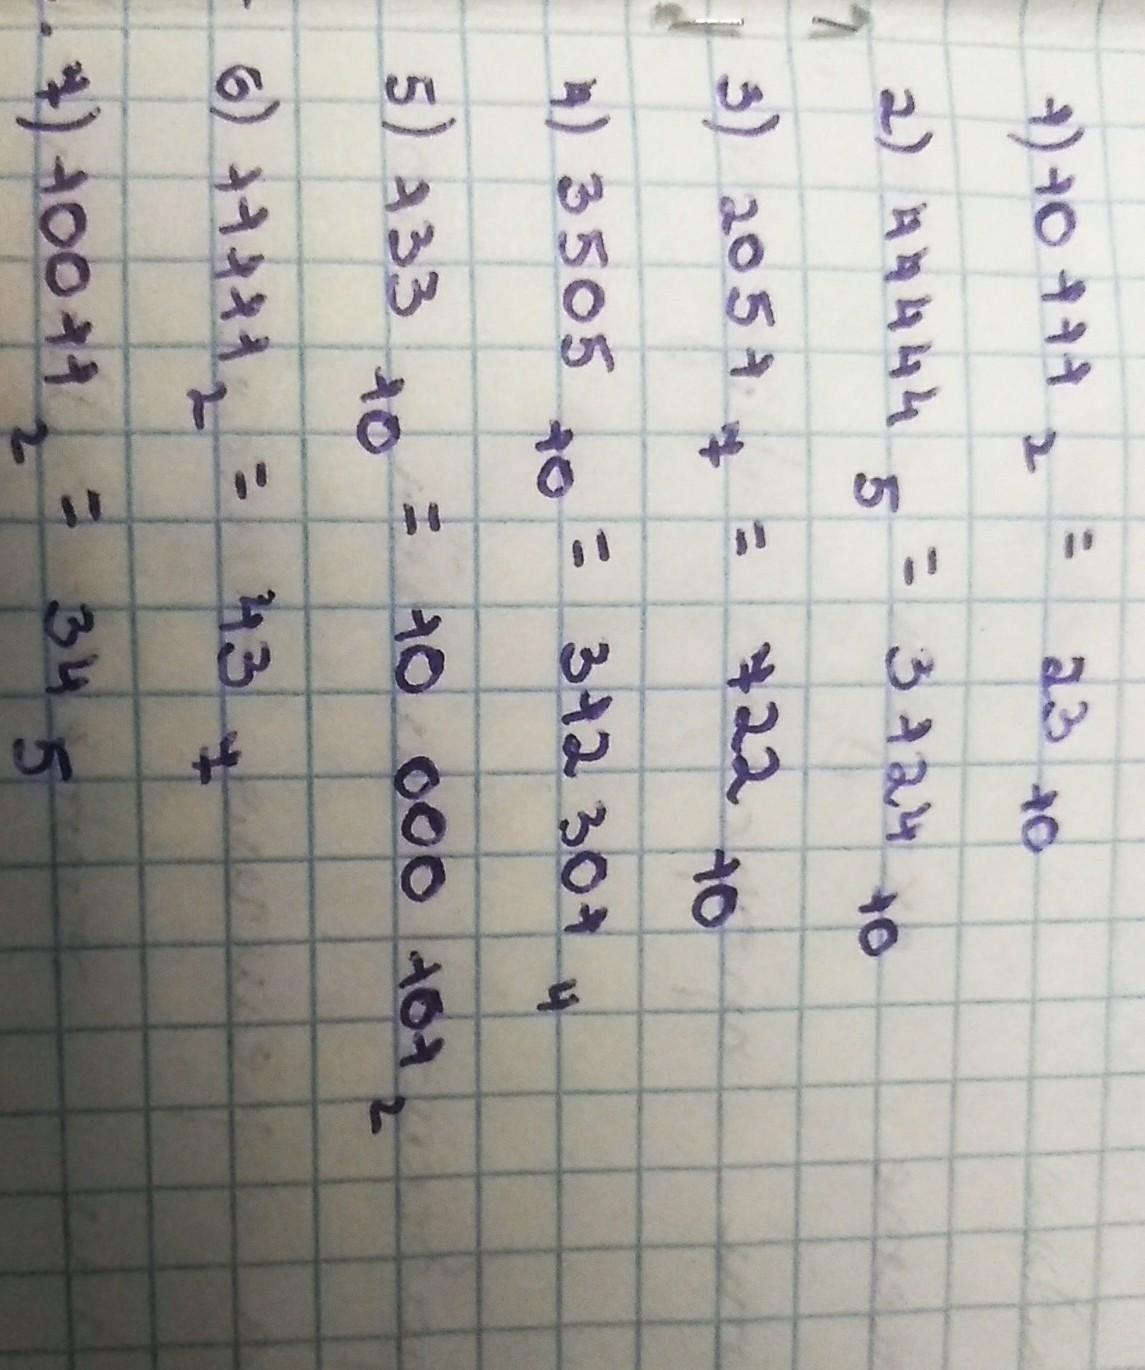 1) 10111 ₂ = 23 ₁₀
2) 44444 ₅ = 3124 ₁₀
3) 2051 ₇ = 722 ₁₀
4) 3505 ₁₀ = 312 301 ₄
5) 133 ₁₀ = 10 000 101 ₂
6) 11111 ₂ = 43 ₇
7) 10011 ₂ = 34 ₅